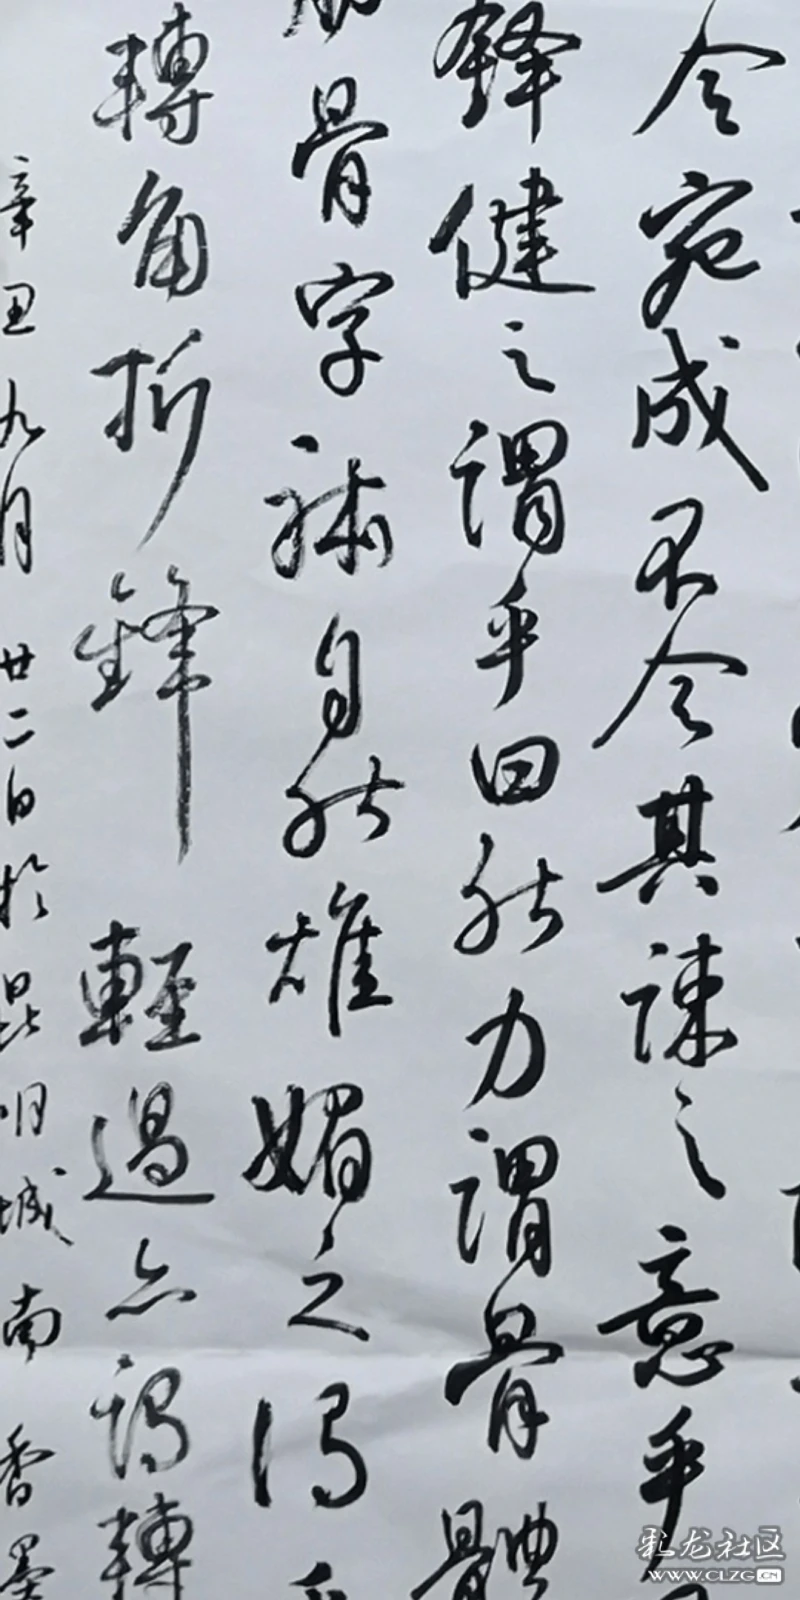 令宛成不令其疎之意乎
鋒健之謂乎曰然力謂骨體
骨字疎自然雄媚之謂乎
轉角折鋒輕過亦謂轉
辛丑九月廿二日於昆明城南香墨
彩龙社区
www.CLZG.CN